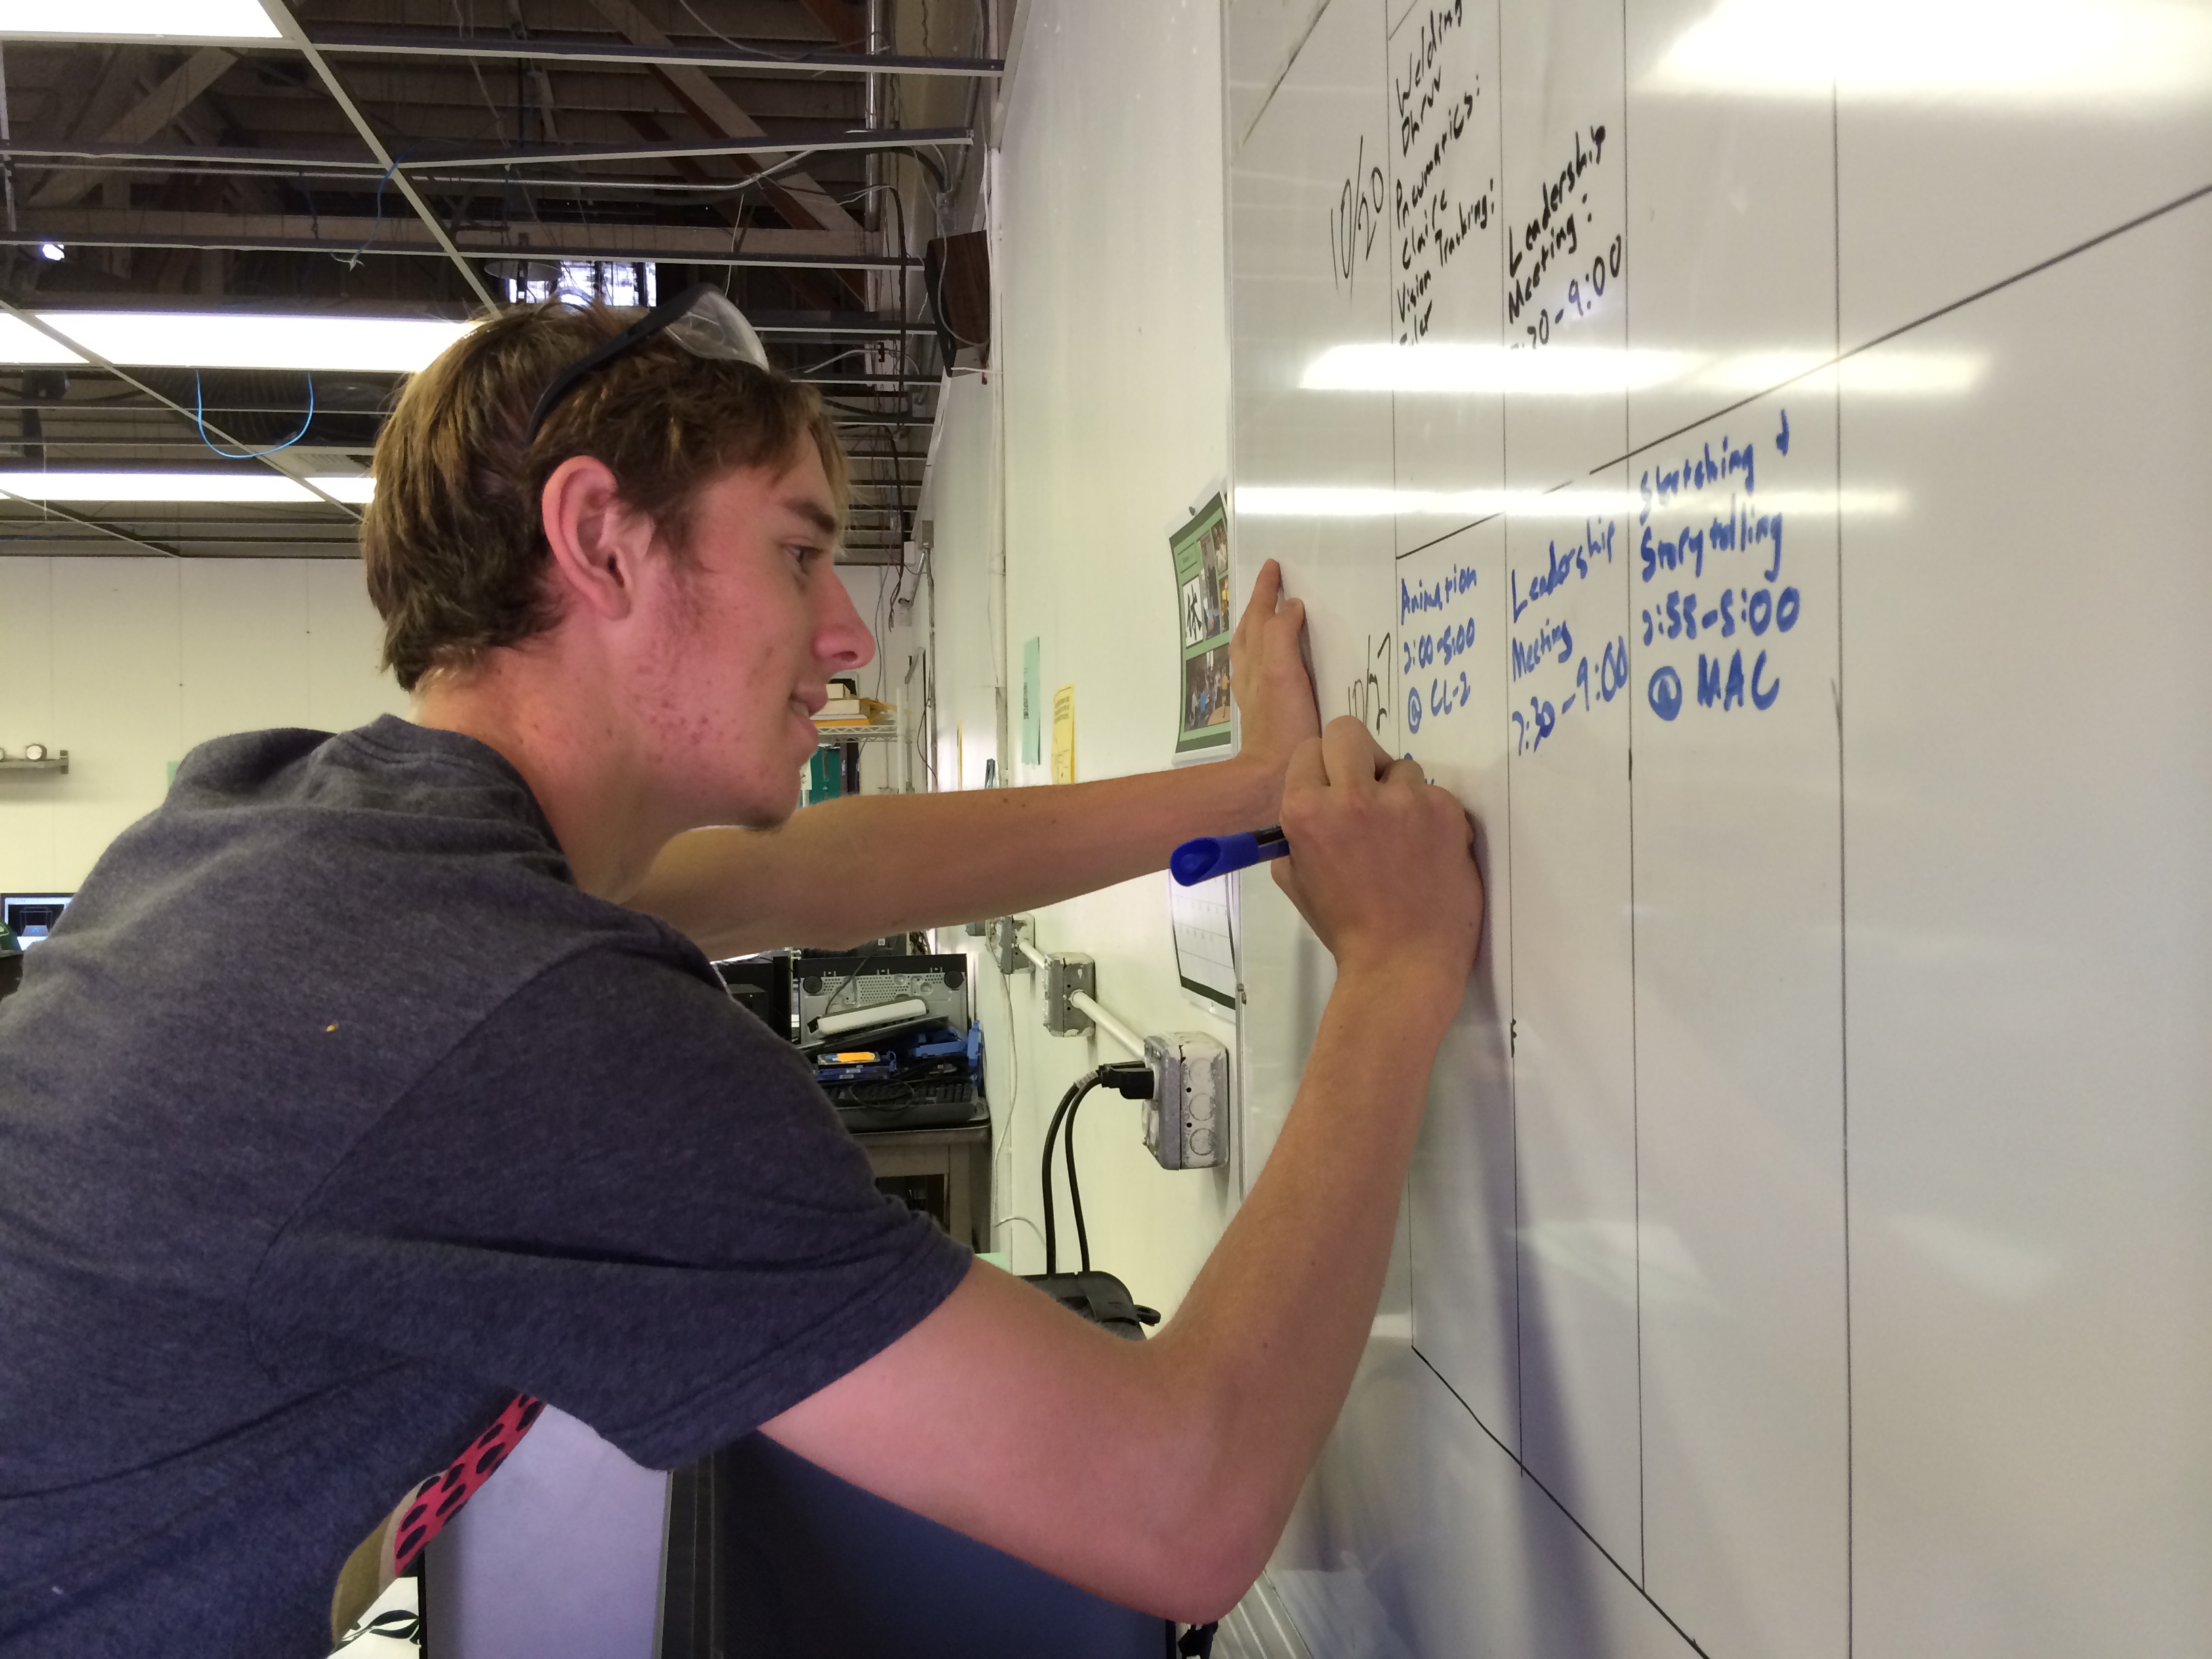 10/20
Welding
Dhruv
Pneumatics:
Claire
Vision Tracking:
Leadership
Meeting:
:30-9:00
10/27
Animation
2:00-5:00
@ CL-2
Leadership
Meeting
7:30-9:00
Stretching &
Storytelling
2:55-5:00
@ MAC
休